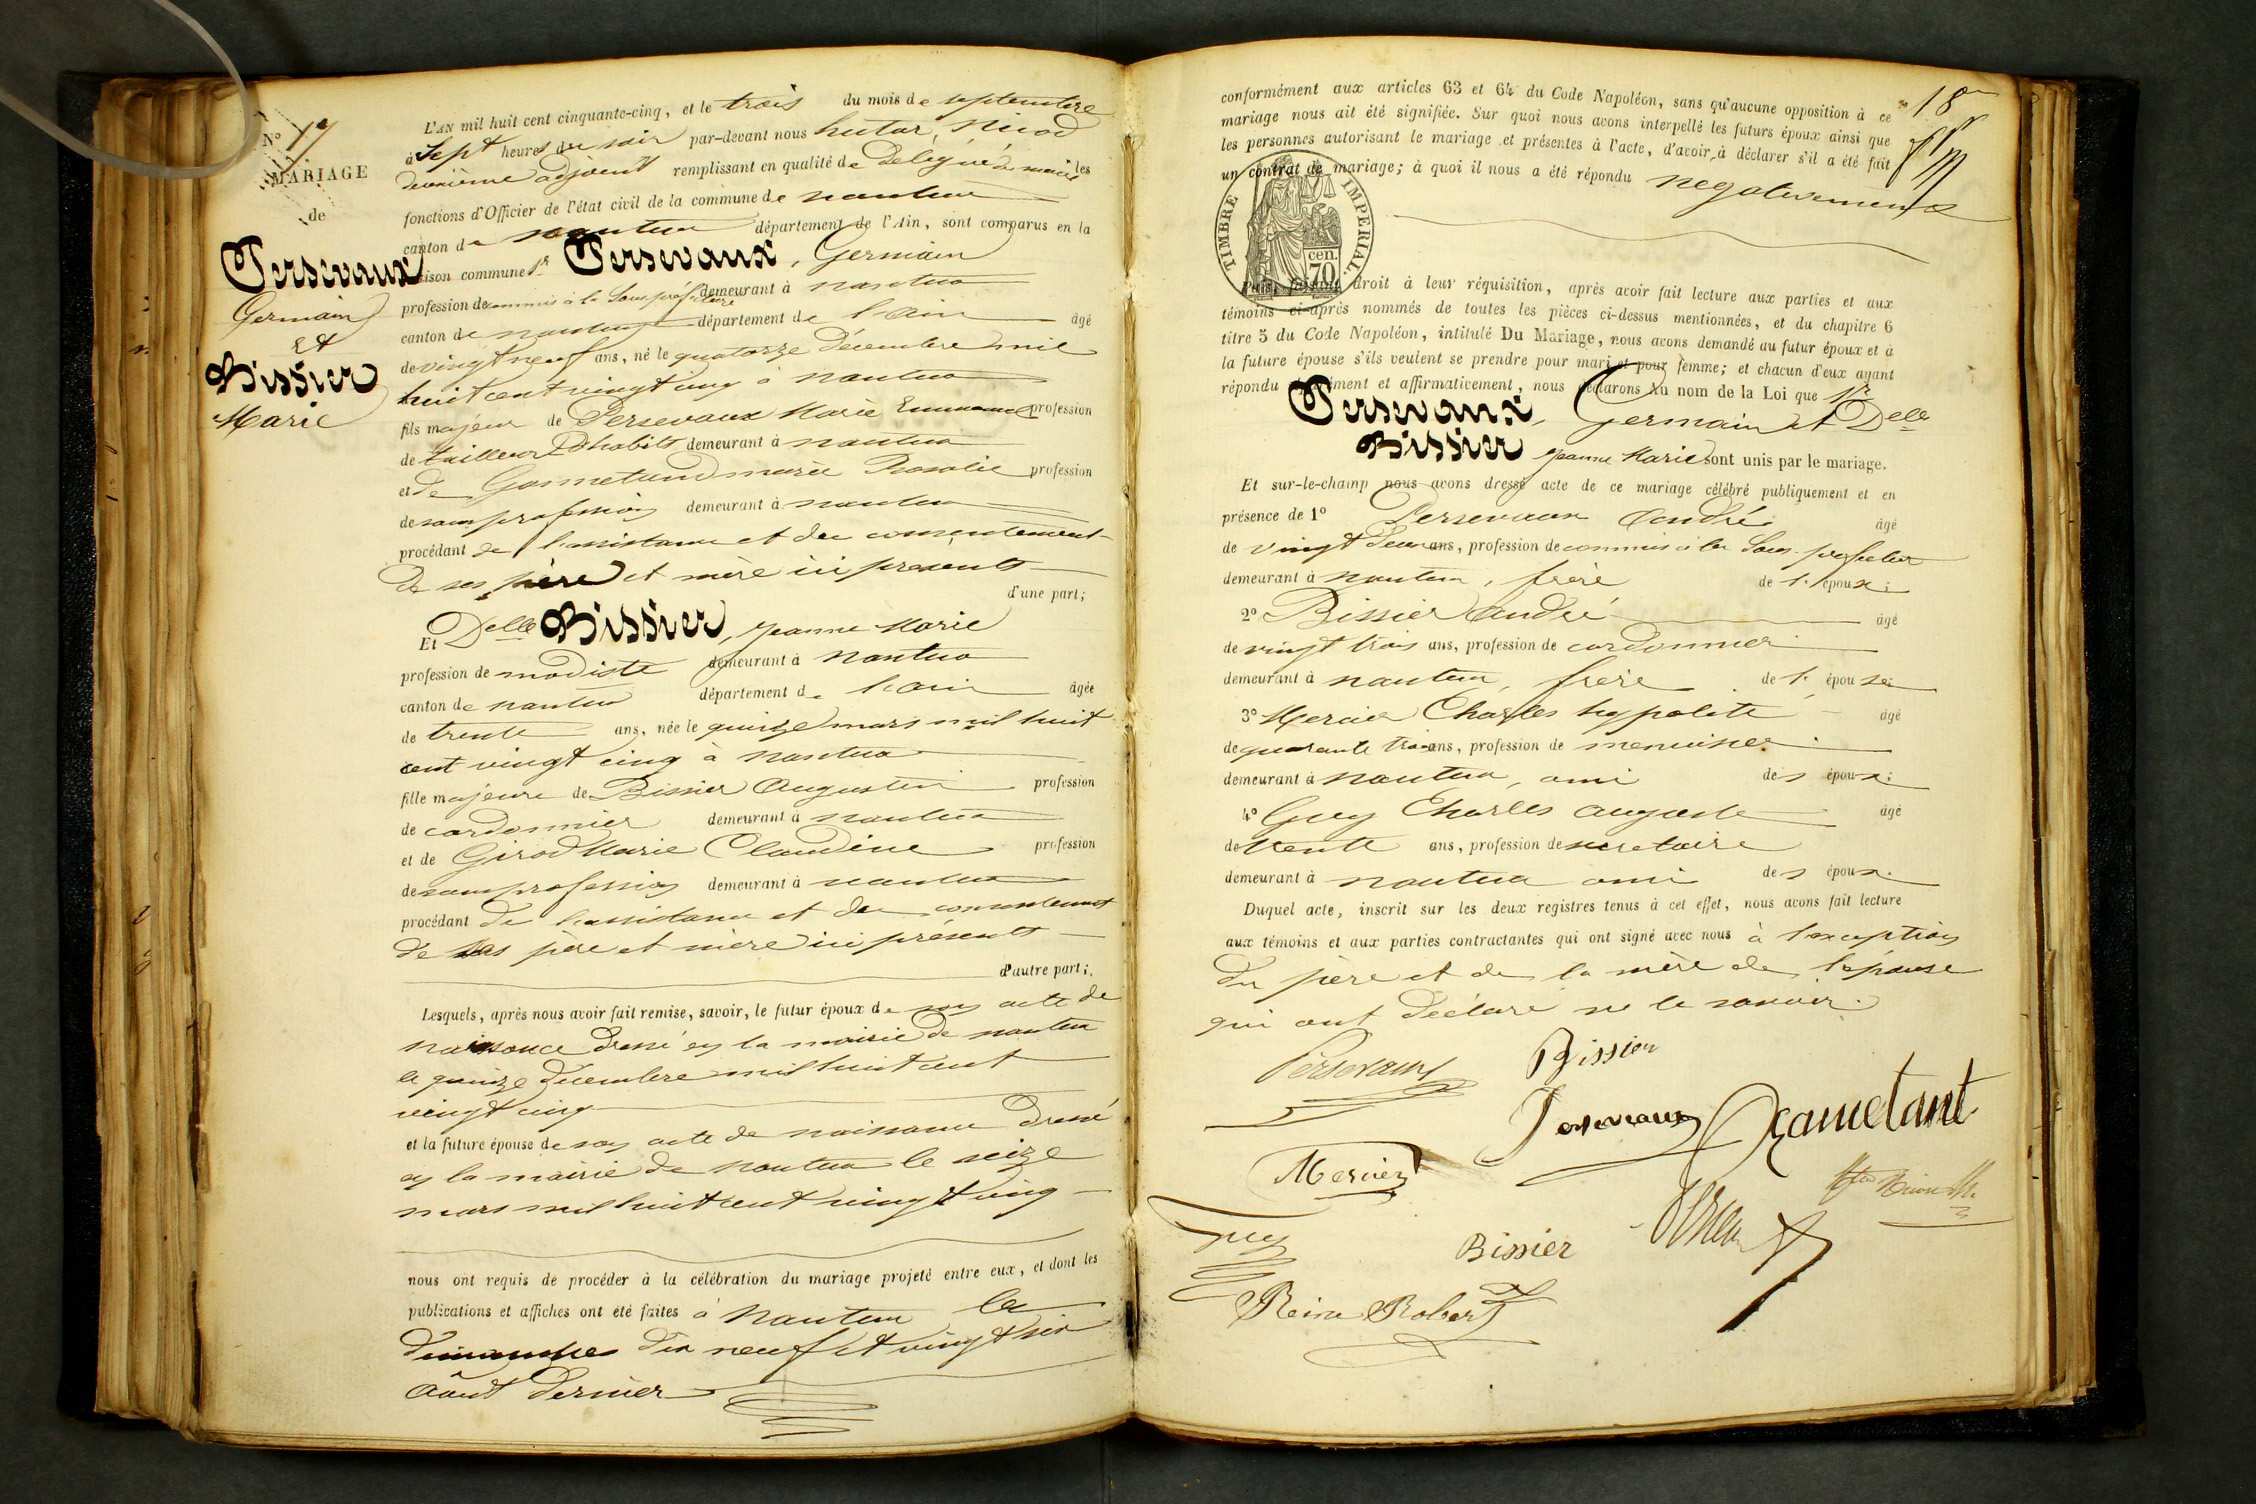 N° 17
MARIAGE
de
Persevaux
Germain
Et
Bissier
Marie
L'AN mil huit cent cinquante-cinq, et le trois du mois de septembre
à Sept heures du soir par-devant nous hector, Nicod
deuxième adjoint remplissant en qualité de délégué du maire les
fonctions d'Officier de l'état civil de la commune de nantua
canton de nantua département de l'Ain, sont comparus en la
maison commune Sr Persevaux, Germain
profession de commis à la Sous préfecture demeurant à nantua
canton de nantua département de l'ain âgé
de vingt neuf ans, né le quatorze décembre mil
huit cent vingt cinq à nantua
fils majeur de Persevaux Marie Emmanuel profession
de tailleur D'habits demeurant à nantua
et de marie Rosalie profession
de sans profession demeurant à nantua
procédant de l'assistance et du consentement
de ses père et mère ici présents
d'une part;
Et Delle Bissier, Jeanne Marie
profession de modiste demeurant à nantua
canton de nantua département de l'ain âgée
de trente ans, née le quinze mars mil huit
cent vingt cinq à nantua
fille majeure de Bissier Augustin profession
de cordonnier demeurant à nantua
et de Girod Marie Claudine profession
de sans profession demeurant à nantua
procédant de l'assistance et du consentement
de ses père et mère ici présents
d'autre part;
Lesquels, après nous avoir fait remise, savoir, le futur époux de son acte de
naissance dressé en la mairie de nantua
le quinze décembre mil huit cent
vingt cinq
et la future épouse de son acte de naissance dressé
en la mairie de nantua le seize
mars mil huit cent vingt cinq
nous ont requis de procéder à la célébration du mariage projeté entre eux, et dont les
publications et affiches ont été faites à nantua les
dimanches dix neuf et vingt six
Août dernier
18
conformément aux articles 63 et 64 du Code Napoléon, sans qu'aucune opposition à ce
mariage nous ait été signifiée. Sur quoi nous avons interpellé les futurs époux ainsi que
les personnes autorisant le mariage et présentes à l'acte, d'avoir à déclarer s'il a été fait
un contrat de mariage; à quoi il nous a été répondu negativement
TIMBRE IMPERIAL.
70 cen.
Puis, faisant droit à leur réquisition, après avoir fait lecture aux parties et aux
témoins ci-après nommés de toutes les pièces ci-dessus mentionnées, et du chapitre 6
titre 5 du Code Napoléon, intitulé Du Mariage, nous avons demandé au futur époux et à
la future épouse s'ils veulent se prendre pour mari et pour femme; et chacun d'eux ayant
répondu séparément et affirmativement, nous déclarons Au nom de la Loi que Sr
Persevaux, Germain et Delle
Bissier Jeanne Marie sont unis par le mariage.
Et sur-le-champ nous avons dressé acte de ce mariage célébré publiquement et en
présence de 1° Persevaux André âgé
de vingt deux ans, profession de commis à la Sous-préfecture
demeurant à nantua, frère de l'époux;
2° Bissier André âgé
de vingt trois ans, profession de cordonnier
demeurant à nantua, frère de l'épouse;
3° Mercier Charles hypolite âgé
de quarante trois ans, profession de menuisier
demeurant à nantua, ami des époux;
4° Guy Charles auguste âgé
de trente ans, profession de secretaire
demeurant à nantua ami des époux.
Duquel acte, inscrit sur les deux registres tenus à cet effet, nous avons fait lecture
aux témoins et aux parties contractantes qui ont signé avec nous à l'exception
du père et de la mère de l'épouse
qui ont déclaré ne le savoir.
Persevaux
Bissier
Persevaux
Mercier
Guy
Bissier
Reine Robert